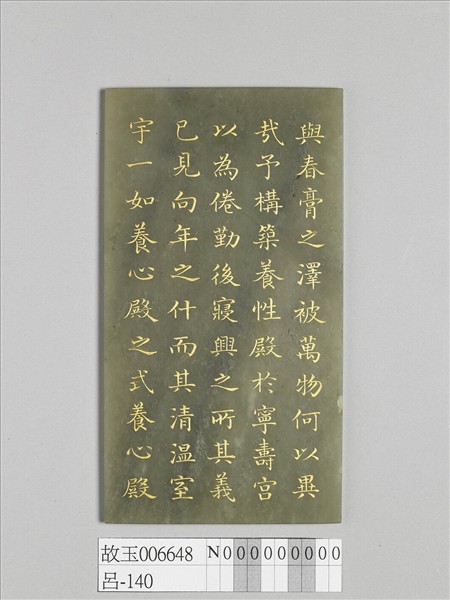 與春膏之澤被萬物何以異
㢤予構築養性殿於寧壽宮
以為倦勤後寢興之所其義
已見向年之什而其清温室
宇一如養心殿之式養心殿
故玉006648
N000000000
呂-140